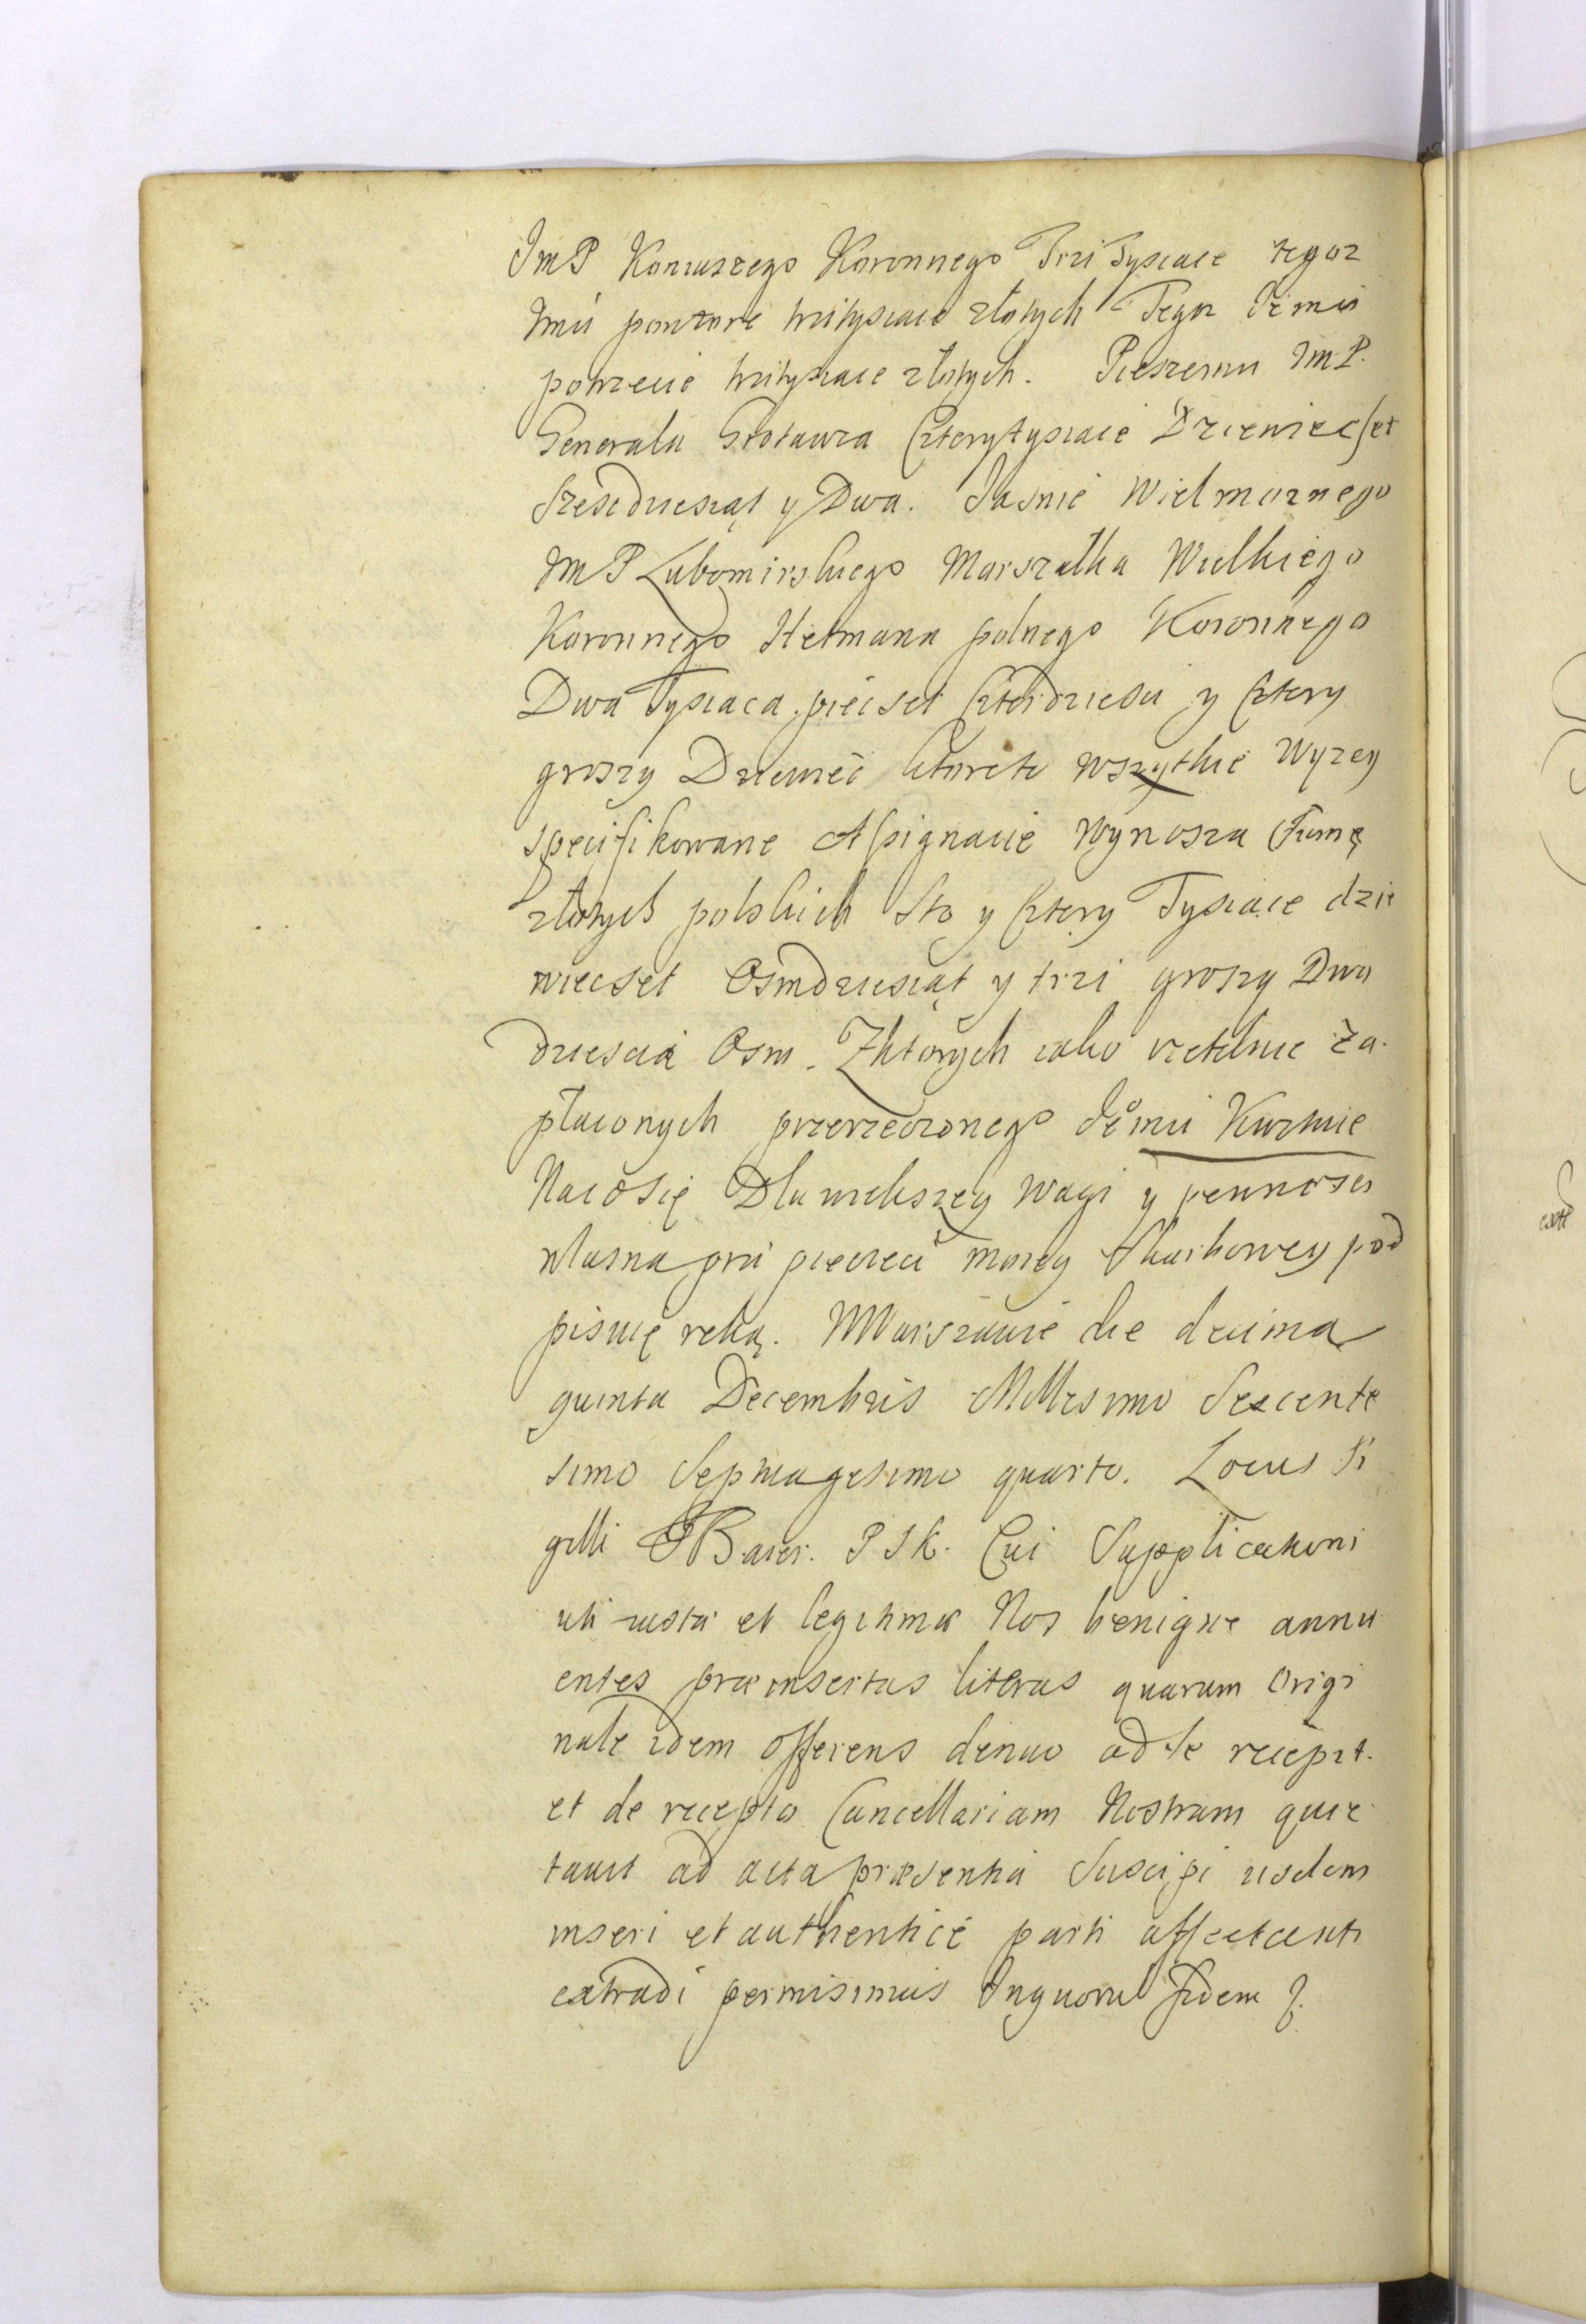 JmP Koniuszego Koronnego Trzi Tysiące tegoz
Jmci powtore trzitysiace złotych Tegoz Jemci
potrzecie trzitysiace złotych. Pieszemu JmP.
Generała Grotawza Czterytysiące Dziewiecset
Szescdziesiąt y Dwa. Jasnie Wielmoznego
JmP Lubomirskiego Marszałka Wielkiego
Koronnego Hetmana polnego Koronnego
Dwa Tysiąca piecset Czterdziesci y Cztery
groszy Dziewięc ktorete wszytkie wyzey
specifikowane Assignacie wynosza Sumę
złotych polskich Sto y Cztery Tysiące dzie
wiecset Osmdziesiąt y trzi groszy Dwa
dziescia Osm. Zktorych iako rzetelnie Za.
płaconych przerzeczonego Jemci Kwituie
Naco się Dla wiekszey wagi y pewnosci
własna przi pieczeci moiey Skarbowey pod
pisuię reką. WWarszawie die decima
quinta Decembris Millesimo Sexcente
simo Septuagesimo quarto. Locus Si
gilli PSK. Cui Supplicationi
uti iusta et legitima Nos benigne annu
entes præinsertas literas quarum Origi
nale idem Offerens denuo ad se recepit.
et de recepto Cancellariam Nostram quie
tavit ad acta præsentia Suscipi iisdem
inseri et authenticé parti affectanti
extradi permisimus Inquoru fidem